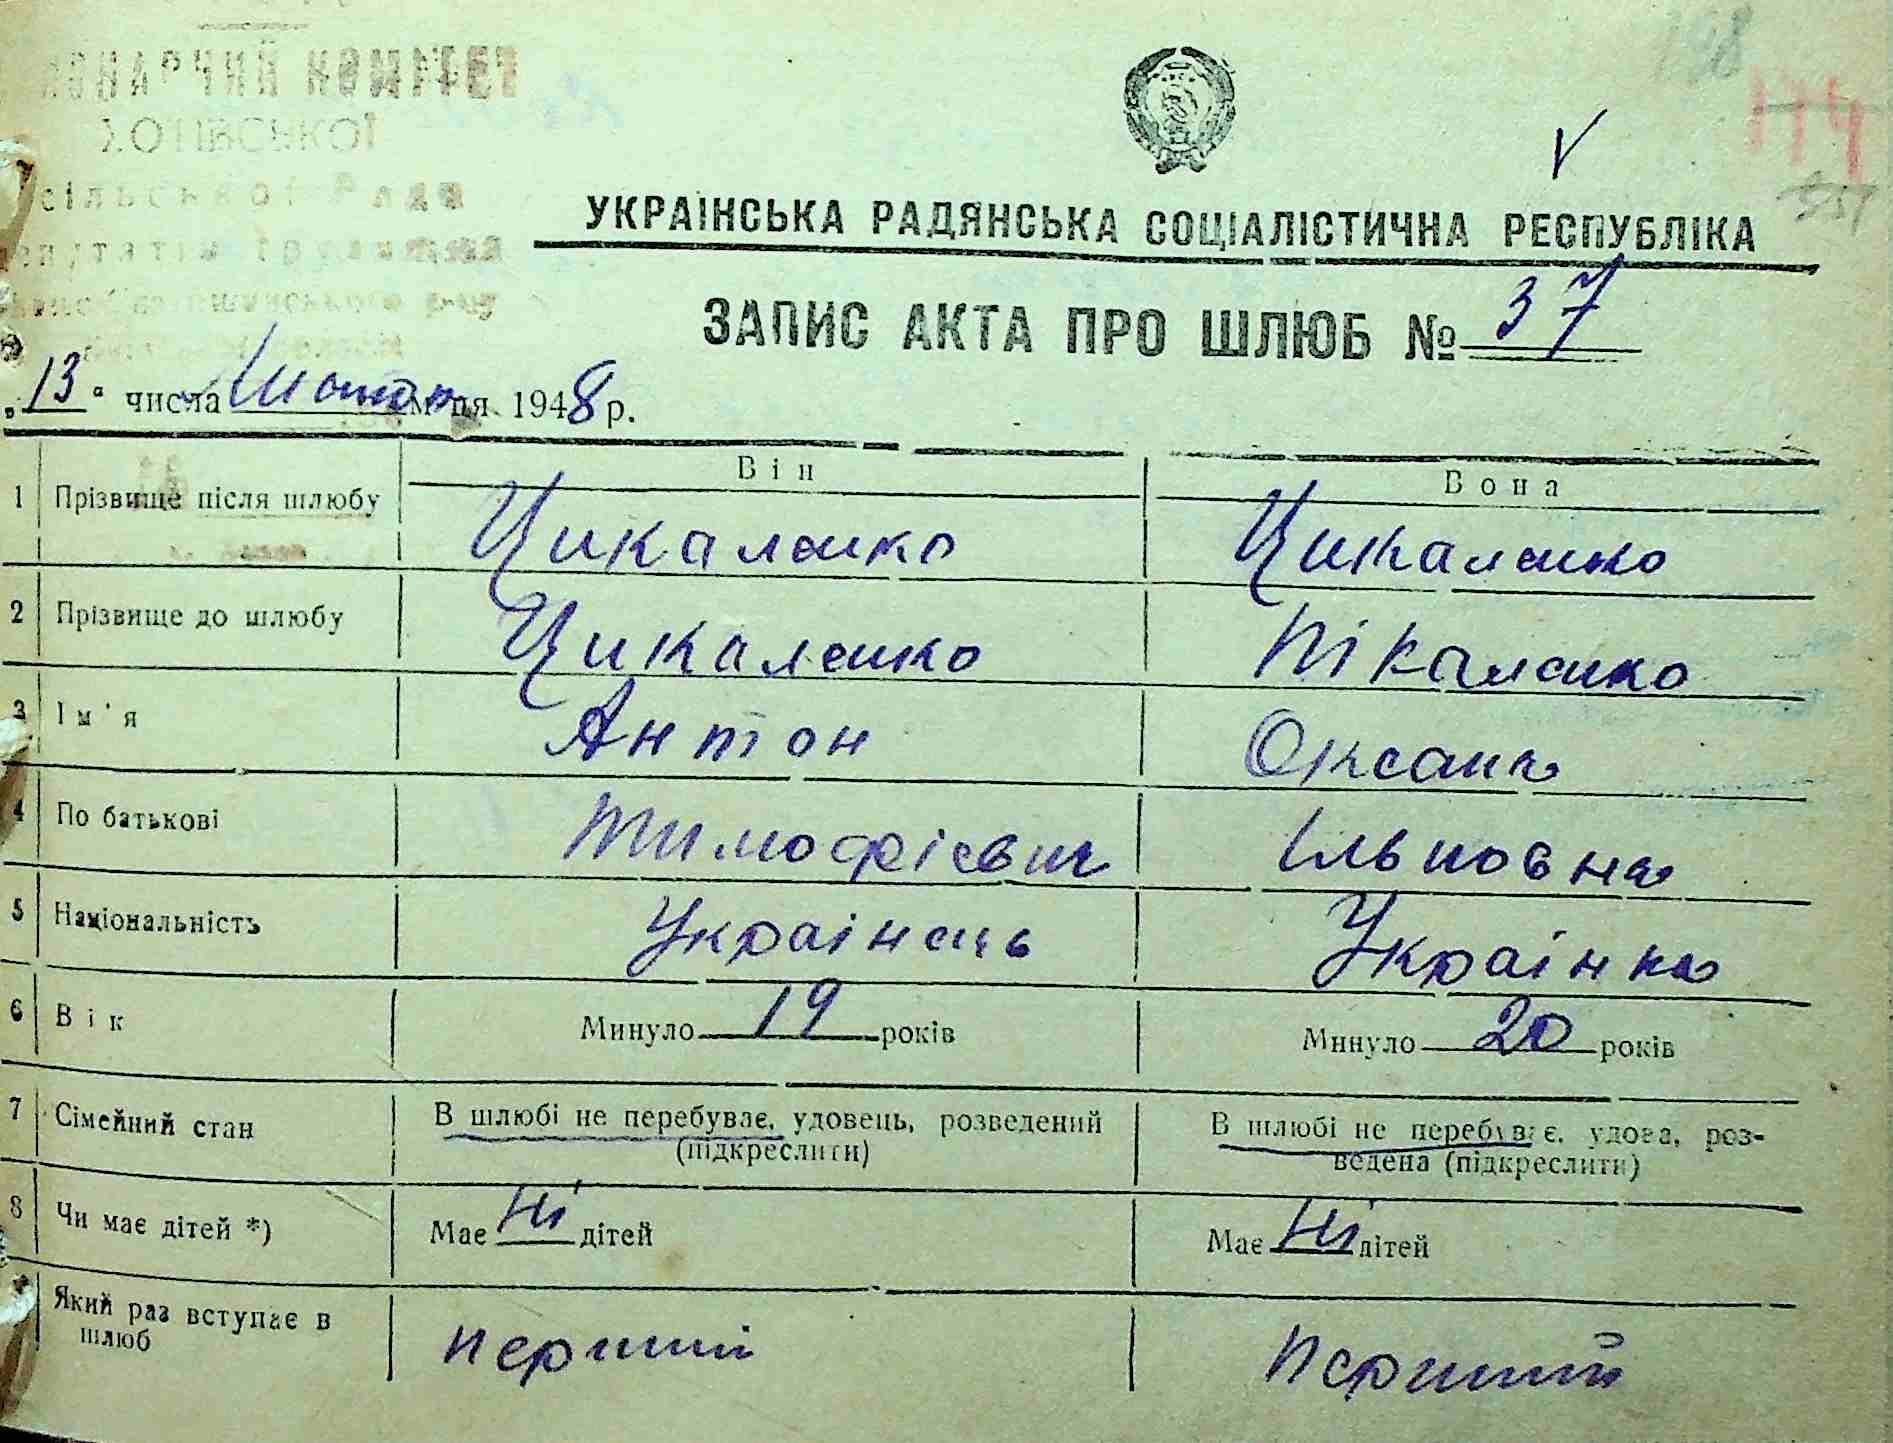 ХОТІВСЬКОЇ
сільської Ради
198
УКРАЇНСЬКА РАДЯНСЬКА СОЦІАЛІСТИЧНА РЕСПУБЛІКА
ЗАПИС АКТА ПРО ШЛЮБ № 37
„13“ числа м-ця 1948 р.
Він Вона
1 Прізвище після шлюбу Цикаленко Цикаленко
2 Прізвище до шлюбу Цикаленко Пікаленко
3 Ім'я Антон Оксана
4 По батькові Тимофієвич Ільковна
5 Національність Українець Українка
6 Вік Минуло 19 років Минуло 20 років
7 Сімейний стан В шлюбі не перебуває, удовець, розведений (підкреслити) В шлюбі не перебуває, удова, роз-
ведена (підкреслити)
8 Чи має дітей *) Має Ні дітей Має Ні дітей
Який раз вступає в
шлюб перший Перший